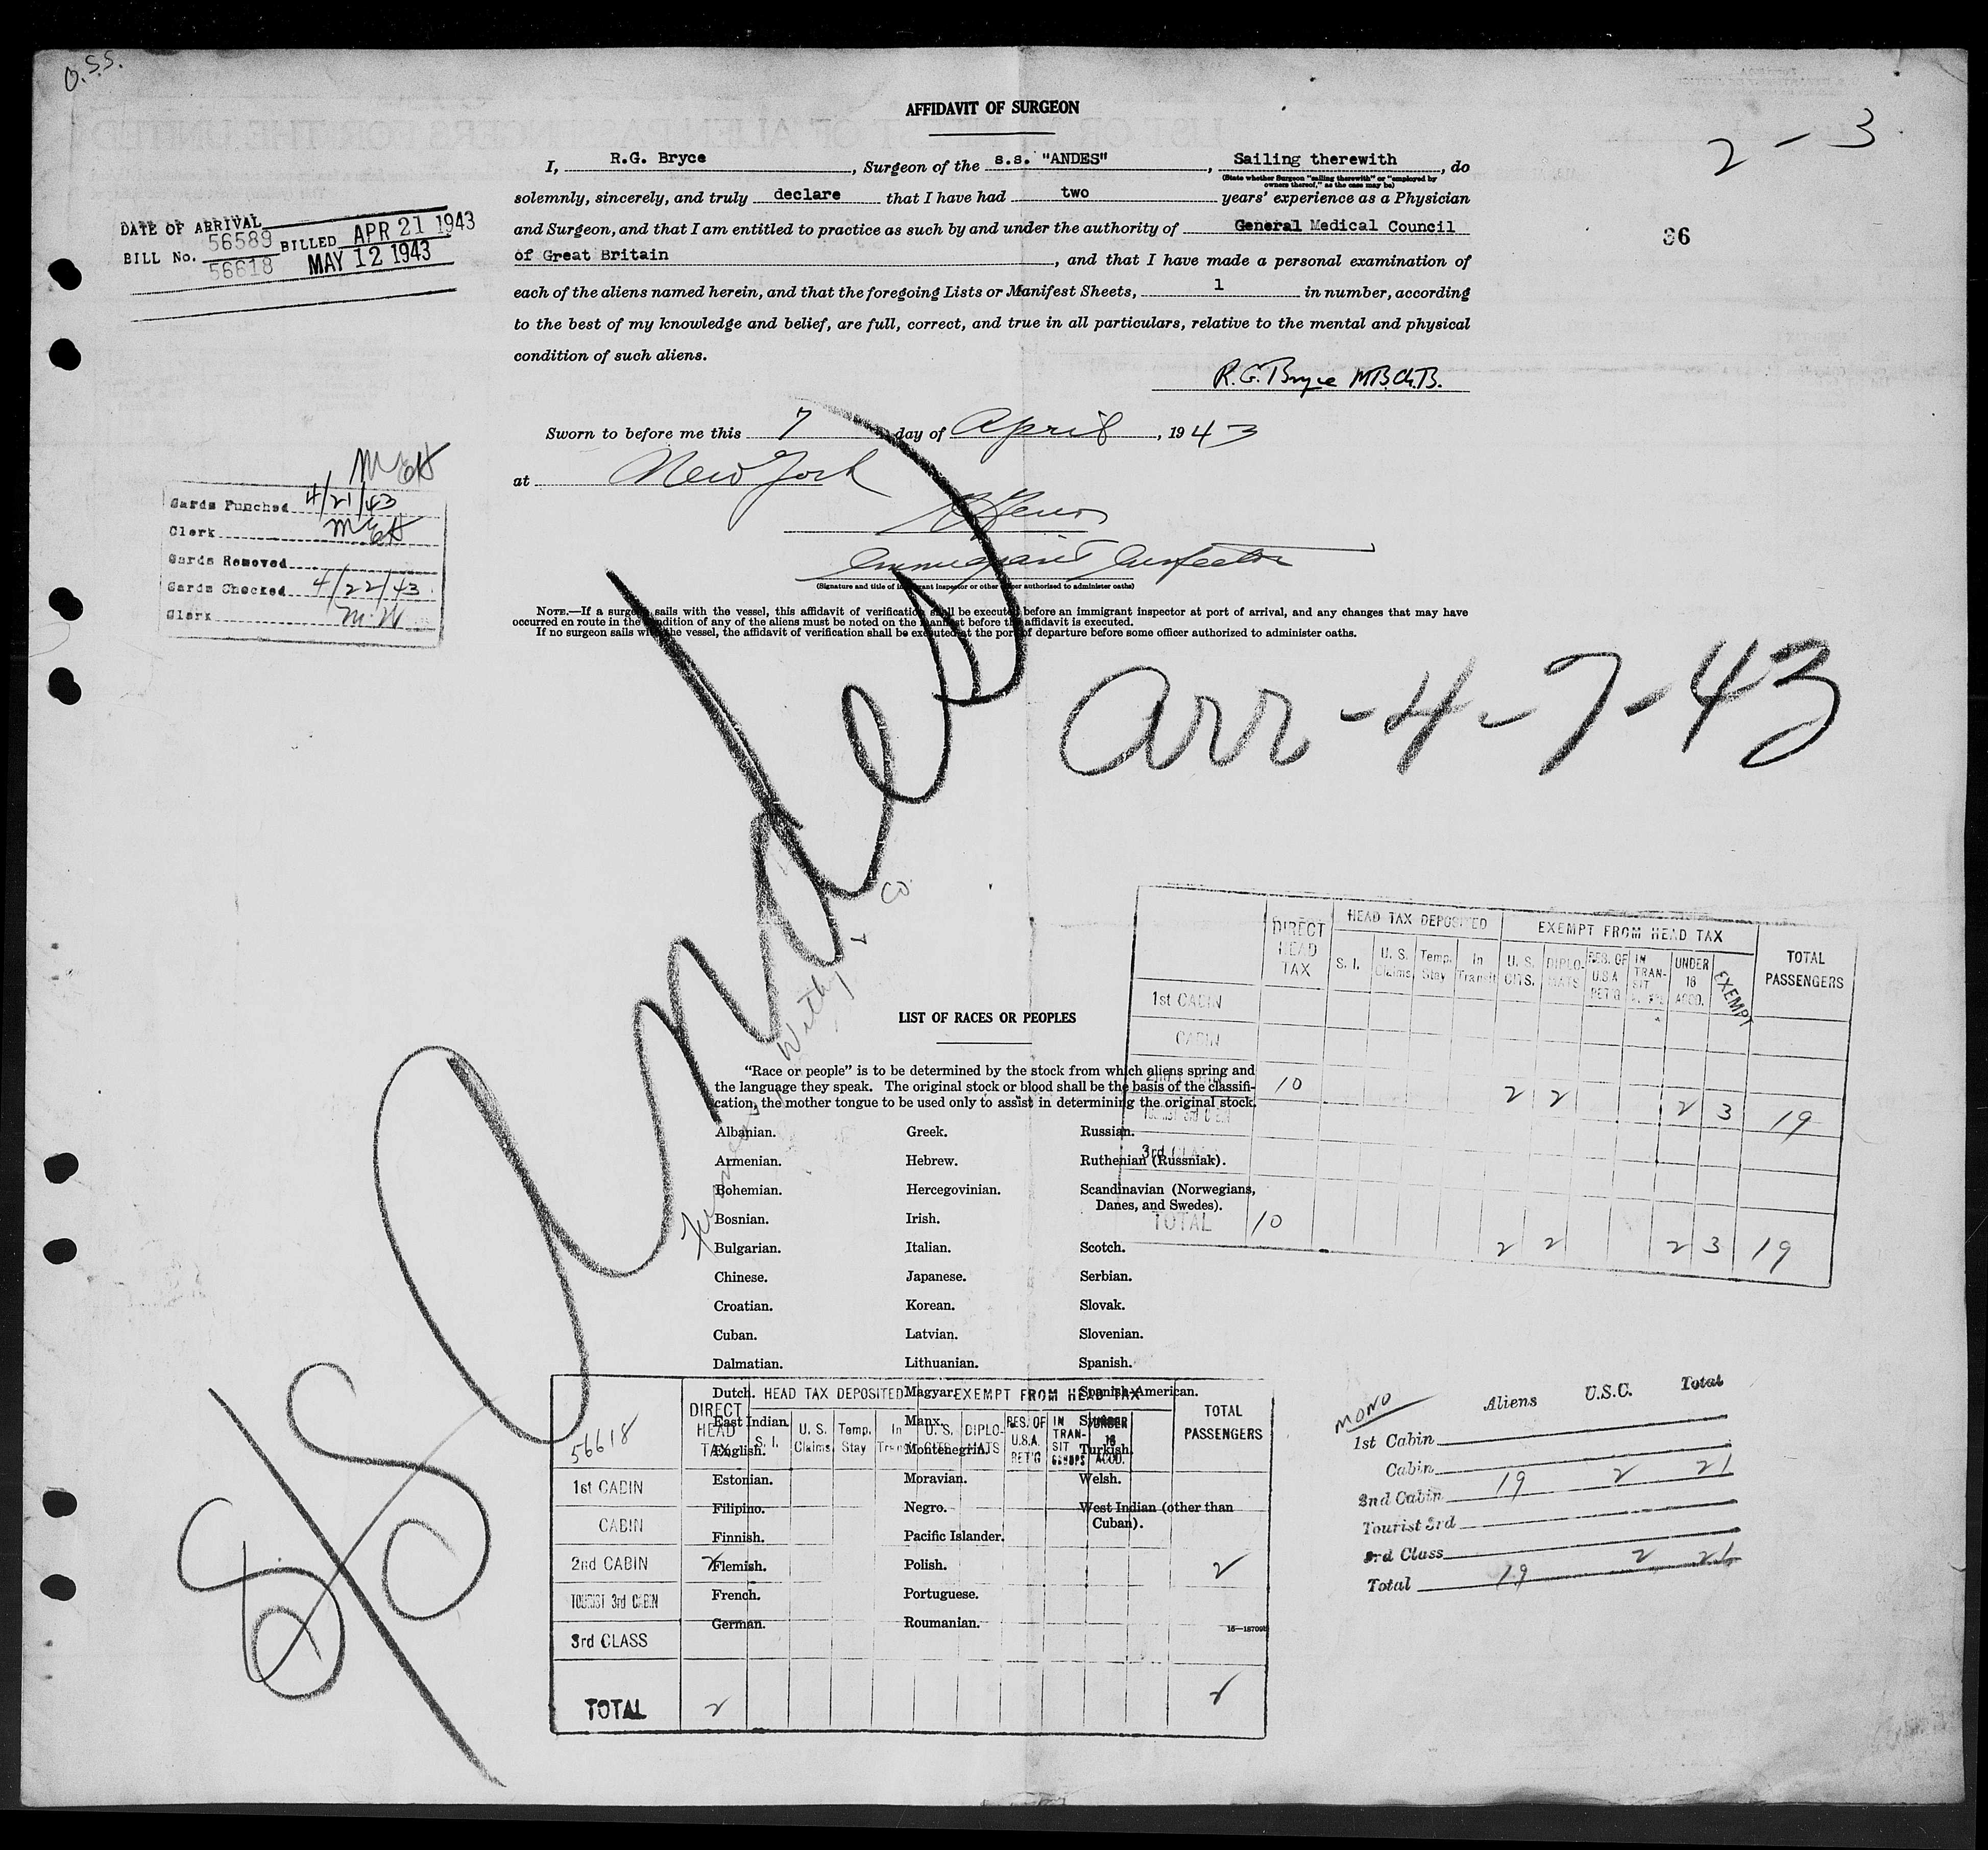 O.S.S.
AFFIDAVIT OF SURGEON
2 - 3
I, R.G. Bryce, Surgeon of the s.s. "ANDES", Sailing therewith, do
(State whether Surgeon "sailing therewith" or "employed by owners thereof," as the case may be)
solemnly, sincerely, and truly declare that I have had two years' experience as a Physician
and Surgeon, and that I am entitled to practice as such by and under the authority of General Medical Council
of Great Britain, and that I have made a personal examination of
each of the aliens named herein, and that the foregoing Lists or Manifest Sheets, 1 in number, according
to the best of my knowledge and belief, are full, correct, and true in all particulars, relative to the mental and physical
condition of such aliens.
R.G. Bryce M.B.Ch.B.
36
DATE OF ARRIVAL
BILL No. 56589 BILLED APR 21 1943
56618 MAY 12 1943
Sworn to before me this 7 day of April, 1943
at New York
Immigrant Inspector
(Signature and title of immigrant inspector or other officer authorized to administer oaths)
Cards Punched 4/21/43
Clerk
Cards Removed
Cards Checked 4/22/43
Clerk M.W
NOTE.—If a surgeon sails with the vessel, this affidavit of verification shall be executed before an immigrant inspector at port of arrival, and any changes that may have
occurred en route in the condition of any of the aliens must be noted on the manifest before the affidavit is executed.
If no surgeon sails with the vessel, the affidavit of verification shall be executed at the port of departure before some officer authorized to administer oaths.
S/S Andes
arr - 4 - 7 - 43
Withy & Co
LIST OF RACES OR PEOPLES
"Race or people" is to be determined by the stock from which aliens spring and
the language they speak. The original stock or blood shall be the basis of the classifi-
cation, the mother tongue to be used only to assist in determining the original stock.
Albanian.
Armenian.
Bohemian.
Bosnian.
Bulgarian.
Chinese.
Croatian.
Cuban.
Dalmatian.
Dutch.
East Indian.
English.
Estonian.
Filipino.
Finnish.
Flemish.
French.
German.
Greek.
Hebrew.
Hercegovinian.
Irish.
Italian.
Japanese.
Korean.
Latvian.
Lithuanian.
Magyar.
Manx.
Montenegrin.
Moravian.
Negro.
Pacific Islander.
Polish.
Portuguese.
Roumanian.
Russian.
Ruthenian (Russniak).
Scandinavian (Norwegians,
Danes, and Swedes).
Scotch.
Serbian.
Slovak.
Slovenian.
Spanish.
Spanish-American.
Syrian.
Turkish.
Welsh.
West Indian (other than
Cuban).
DIRECT HEAD TAX HEAD TAX DEPOSITED EXEMPT FROM HEAD TAX TOTAL PASSENGERS
S. I. U. S. Claims Temp. Stay In Transit U. S. CITS. DIPLOMATS RES. OF U.S.A. RET'G IN TRANSIT UNDER 16 ACCD. EXEMPT
1st CABIN
CABIN
2nd CABIN 10 2 2 2 3 19
TOURIST 3rd CABIN
3rd CLASS
TOTAL 10 2 2 2 3 19
56618
DIRECT HEAD TAX HEAD TAX DEPOSITED EXEMPT FROM HEAD TAX TOTAL PASSENGERS
S. I. U. S. Claims Temp. Stay In Transit U. S. CITS. DIPLOMATS RES. OF U.S.A. RET'G IN TRANSIT UNDER 16 ACCD.
1st CABIN
CABIN
2nd CABIN 2 2
TOURIST 3rd CABIN
3rd CLASS
TOTAL 2 2
MONO Aliens U.S.C. Total
1st Cabin
Cabin
2nd Cabin 19 2 21
Tourist 3rd
3rd Class
Total 19 2 21